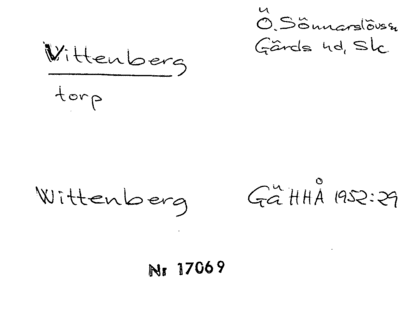 Vittenberg
torp
Ö. Sönnarslövs sn
Gärds hd, Sk
Wittenberg
Gä HHÅ 1952:29
Nr 17069